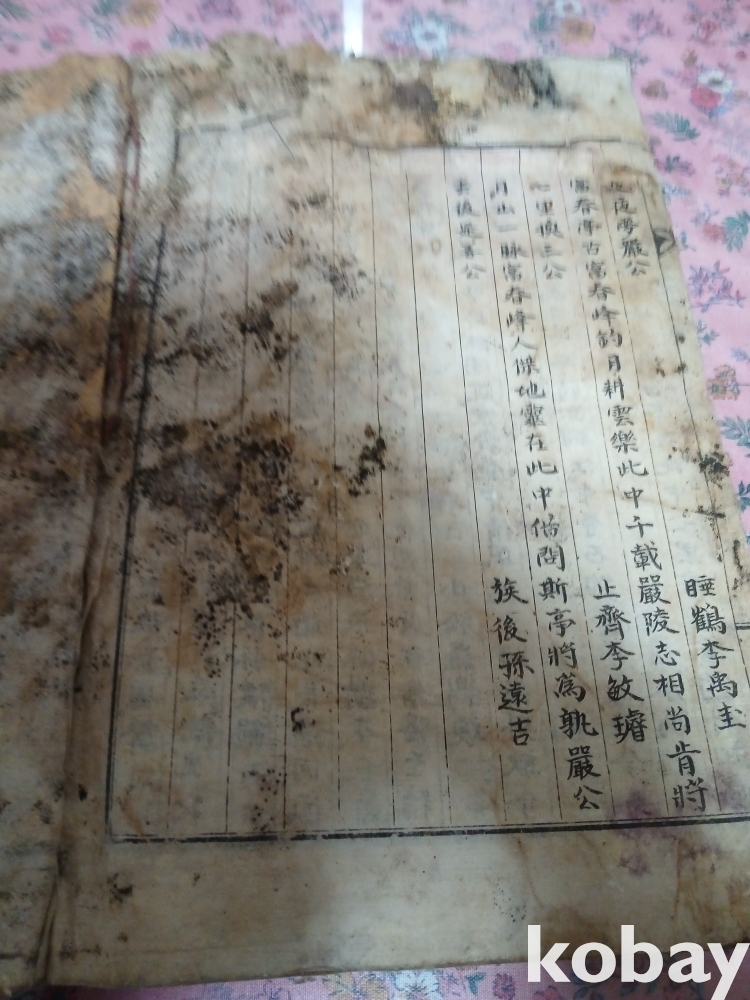 夜夢嚴公 睡鶴李禹圭
富春亭古富春峰釣月耕雲樂此中千載嚴陵志相尚肯將
里換三公 止齊李敏璿
月出一脉富春峰人傑地靈在此中借問斯亭將爲孰嚴公
去後是吾公 族後孫遠吉
kobay